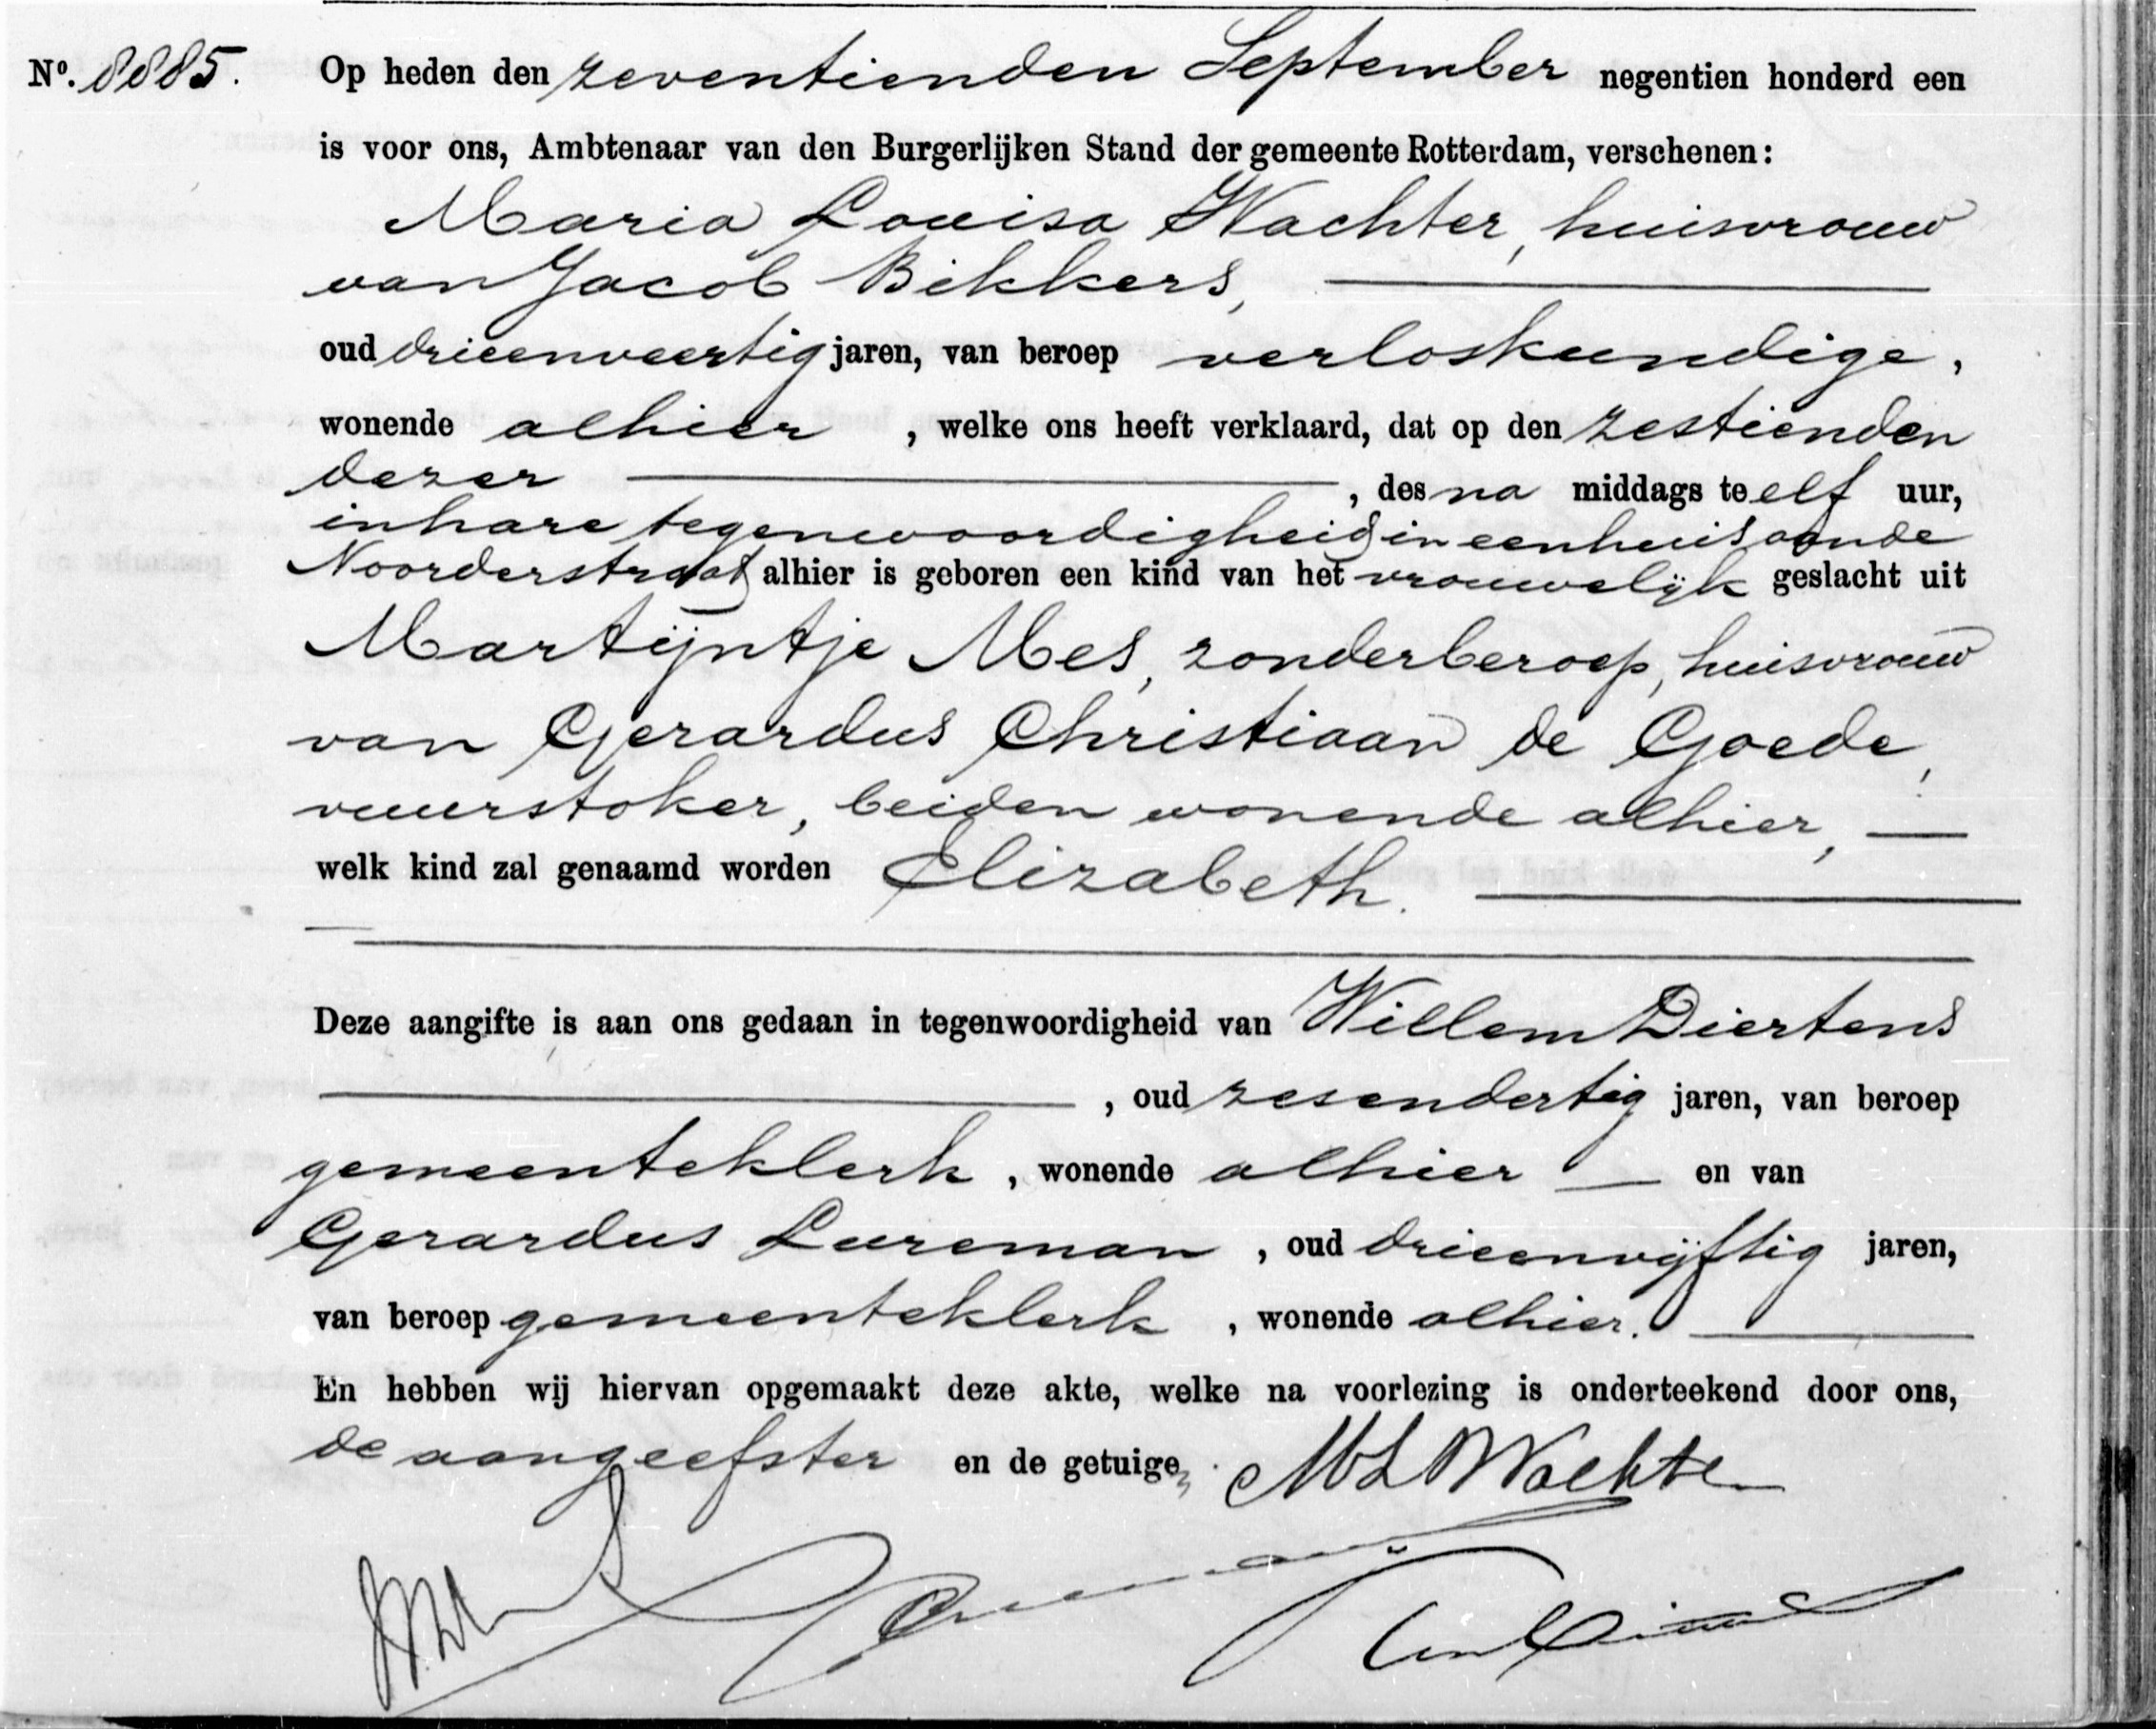 Nº. 8885. Op heden den zeventienden September negentien honderd een
is voor ons, Ambtenaar van den Burgerlijken Stand der gemeente Rotterdam, verschenen:
Maria Louisa Wachter, huisvrouw
van Jacob Bikkers,
oud drieenveertig jaren, van beroep verloskundige,
wonende alhier, welke ons heeft verklaard, dat op den zestienden
dezer, des na middags te elf uur,
in hare tegenwoordigheid in een huis aan de
Noorderstraat alhier is geboren een kind van het vrouwelijk geslacht uit
Martijntje Mes, zonder beroep, huisvrouw
van Gerardus Christiaan de Goede,
vuurstoker, beiden wonende alhier,
welk kind zal genaamd worden Elizabeth.
Deze aangifte is aan ons gedaan in tegenwoordigheid van Willem Diertens
, oud zesendertig jaren, van beroep
gemeenteklerk, wonende alhier en van
Gerardus Lureman, oud drieenvijftig jaren,
van beroep gemeenteklerk, wonende alhier.
En hebben wij hiervan opgemaakt deze akte, welke na voorlezing is onderteekend door ons,
de aangeefster en de getuigen. M L Wachter